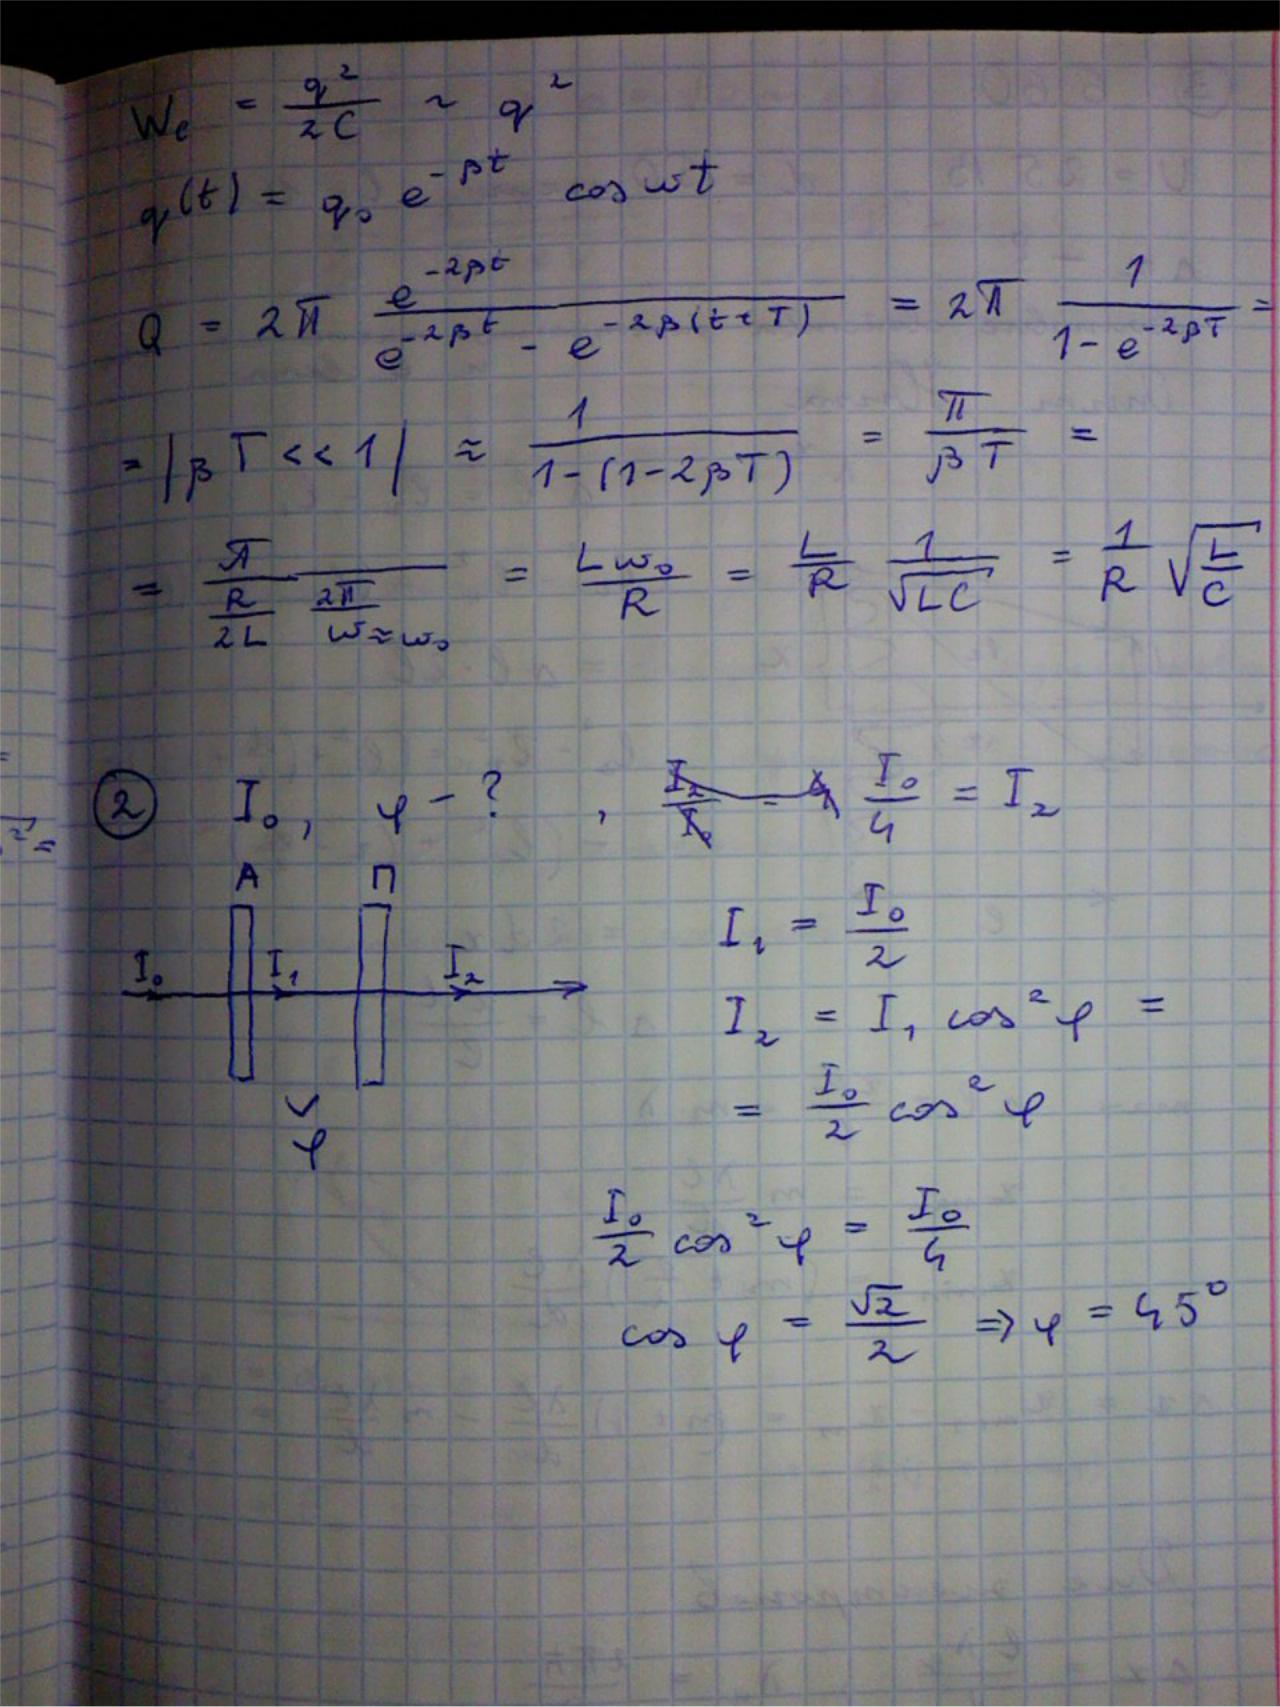 W_c = q²/2C ~ q²
q(t) = q₀ e^(-βt) cos ωt
Q = 2π e^(-2βt)/(e^(-2βt) - e^(-2β(t+T))) = 2π 1/(1 - e^(-2βT)) =
= |βT << 1| ≈ 1/(1-(1-2βT)) = π/(βT) =
= π/((R/2L) (2π/(ω≈ω₀))) = Lω₀/R = L/R 1/√(LC) = 1/R √(L/C)
② I₀, φ - ? , I₀/4 = I₂
А П
I₁ = I₀/2
I₀ I₁ I₂
I₂ = I₁ cos²φ =
= I₀/2 cos²φ
φ
I₀/2 cos²φ = I₀/4
cos φ = √2/2 ⇒ φ = 45°